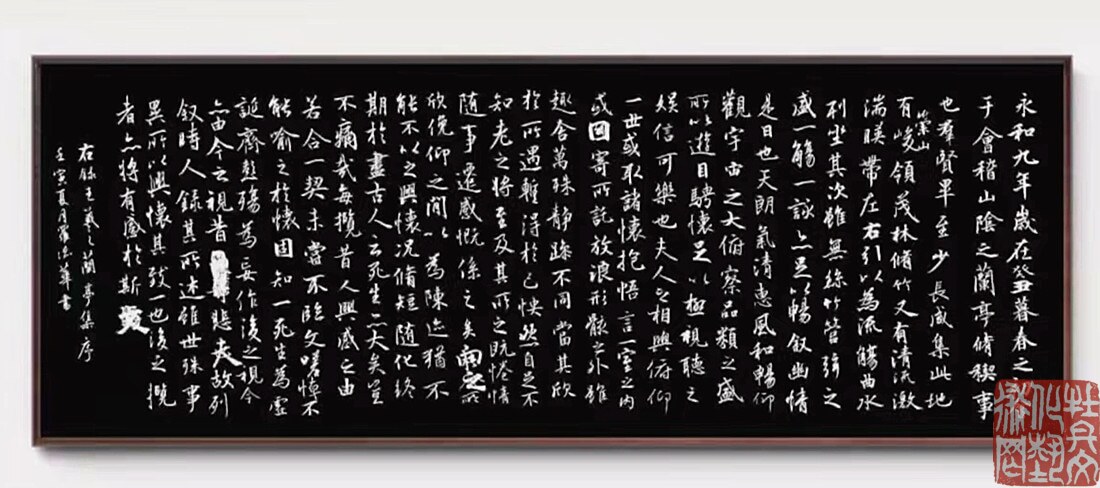 永和九年歲在癸丑暮春之
于會稽山陰之蘭亭脩稧事
也羣賢畢至少長咸集此地
有崇山峻領茂林脩竹又有清流激
湍暎帶左右引以為流觴曲水
列坐其次雖無絲竹管弦之
盛一觴一詠亦足以暢叙幽情
是日也天朗氣清惠風和暢仰
觀宇宙之大俯察品類之盛
所以遊目騁懷足以極視聽之
娛信可樂也夫人之相與俯仰
一世或取諸懷抱悟言一室之內
或因寄所託放浪形骸之外雖
趣舍萬殊靜躁不同當其欣
於所遇暫得於己怏然自足不
知老之將至及其所之既惓情
隨事遷感慨係之矣向之所
欣俛仰之間以為陳迹猶不
能不以之興懷況脩短隨化終
期於盡古人云死生亦大矣豈
不痛哉每攬昔人興感之由
若合一契未嘗不臨文嗟悼不
能喻之於懷固知一死生為虛
誕齊彭殤為妄作後之視今
亦由今之視昔悲夫故列
叙時人錄其所述雖世殊事
異所以興懷其致一也後之攬
者亦將有感於斯文
右錄王羲之蘭亭集序
壬寅夏月羅華書
牡丹文
化藝
網